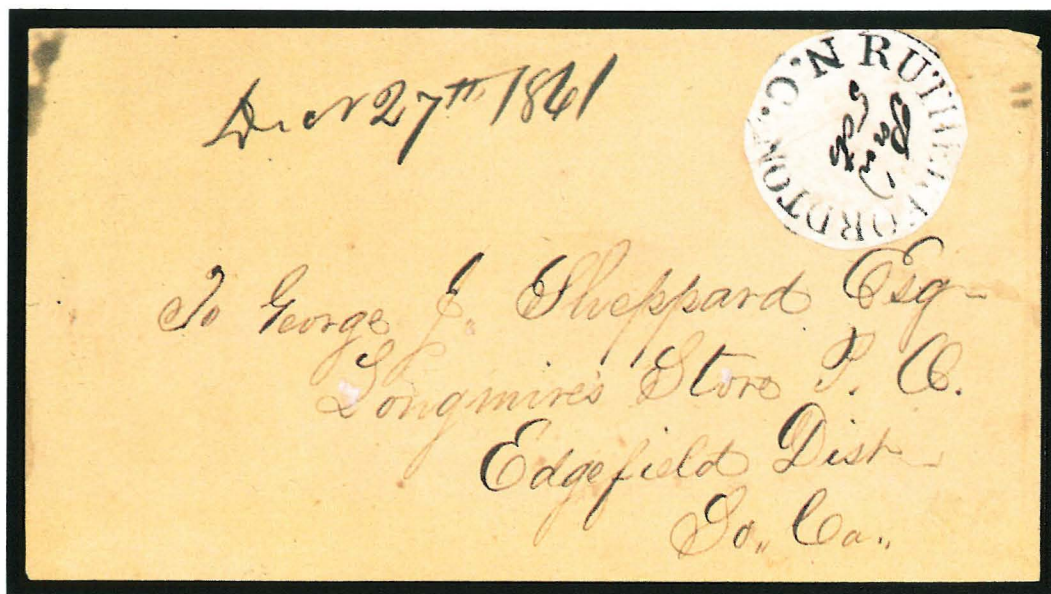 Decr 27th 1861
RUTHERFORDTON N.C.
Paid
5 cts
To George J. Sheppard Esq
Longmires Store P. O.
Edgefield Dist
So,, Ca,,